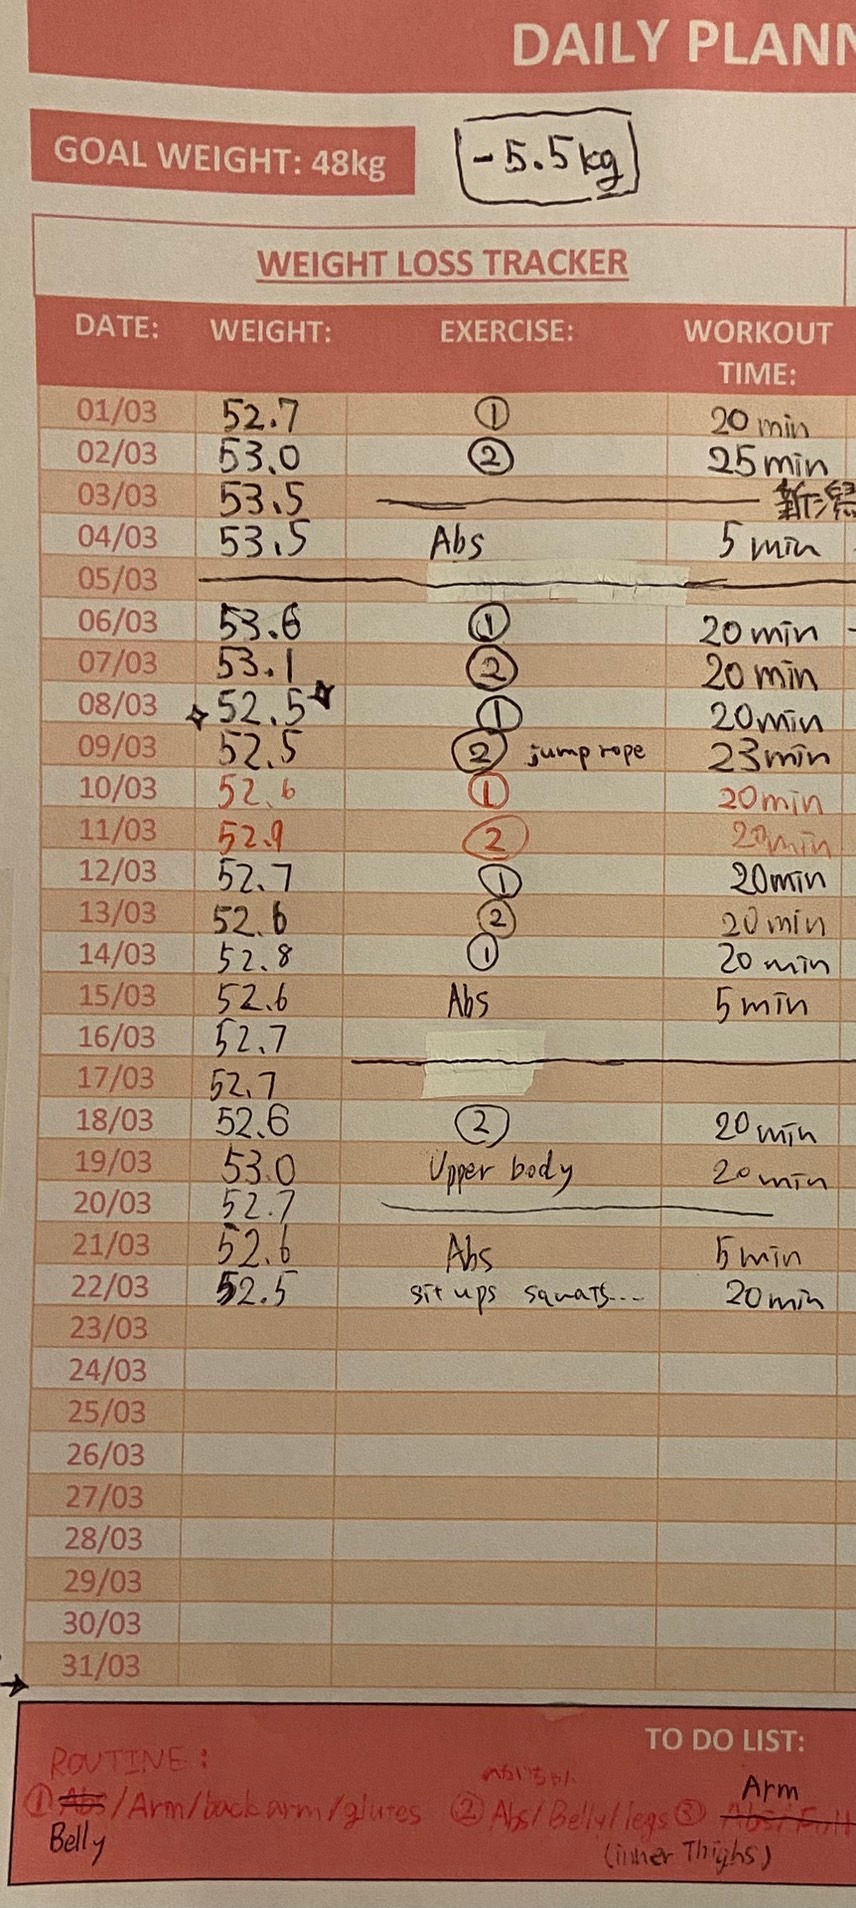 DAILY PLANN
GOAL WEIGHT: 48kg
-5.5kg
WEIGHT LOSS TRACKER
DATE: WEIGHT: EXERCISE: WORKOUT TIME:
01/03 52.7 ① 20 min
02/03 53.0 ② 25 min
03/03 53.5 新潟
04/03 53.5 Abs 5 min
05/03
06/03 53.6 ① 20 min
07/03 53.1 ② 20 min
08/03 52.5 ① 20min
09/03 52.5 ② jump rope 23min
10/03 52.6 ① 20min
11/03 52.9 ② 20min
12/03 52.7 ① 20min
13/03 52.6 ② 20min
14/03 52.8 ① 20 min
15/03 52.6 Abs 5 min
16/03 52.7
17/03 52.7
18/03 52.6 ② 20 min
19/03 53.0 Upper body 20 min
20/03 52.7
21/03 52.6 Abs 5 min
22/03 52.5 sit ups squats... 20min
23/03
24/03
25/03
26/03
27/03
28/03
29/03
30/03
31/03
TO DO LIST:
ROUTINE:
① Abs/Arm/back arm/glutes ② Abs/Belly/legs ③ Abs/Full
Belly
(inner Thighs)
Arm